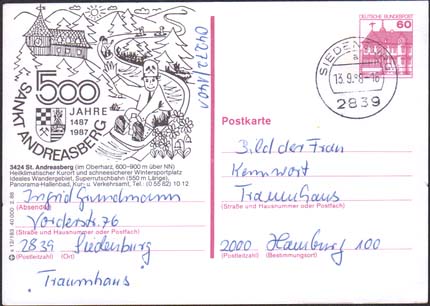 04272/1401
500
JAHRE
1487
1987
SANKT ANDREASBERG
3424 St. Andreasberg (im Oberharz, 600–900 m über NN)
Heilklimatischer Kurort und schneesicherer Wintersportplatz
Ideales Wandergebiet, Superrutschbahn (550 m Länge),
Panorama-Hallenbad, Kur- u. Verkehrsamt, Tel. (0 55 82) 10 12
Ingrid Grundmann
(Absender)
Vorderstr. 76
(Straße und Hausnummer oder Postfach)
2839 Siedenburg
(Postleitzahl) (Ort)
"Traumhaus"
DEUTSCHE BUNDESPOST
60
SIEDENBURG
a
13.9.88-16
2839
Postkarte
Bild der Frau
Kennwort
Traumhaus
(Straße und Hausnummer oder Postfach)
2000 Hamburg 100
(Postleitzahl) (Bestimmungsort)